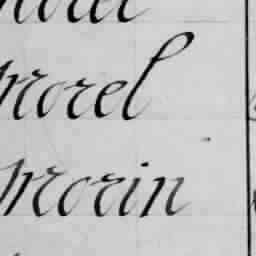 Morel
Morin